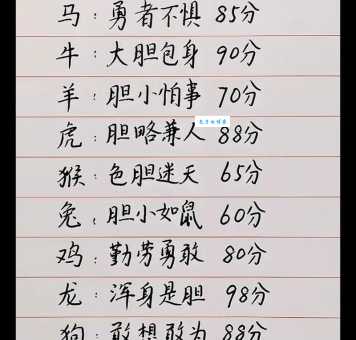 马:勇者不惧 85分
牛:大胆包身 90分
羊:胆小怕事 70分
虎:胆略兼人 88分
猴:色胆迷天 65分
兔:胆小如鼠 60分
鸡:勤劳勇敢 80分
龙:浑身是胆 98分
狗:敢想敢为 88分